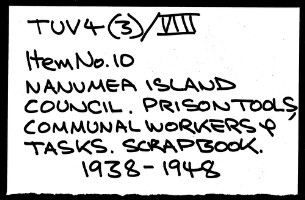 TUV4(3)/VIII
Item No.10
NANUMEA ISLAND
COUNCIL. PRISON TOOLS,
COMMUNAL WORKERS &
TASKS. SCRAPBOOK.
1938-1948